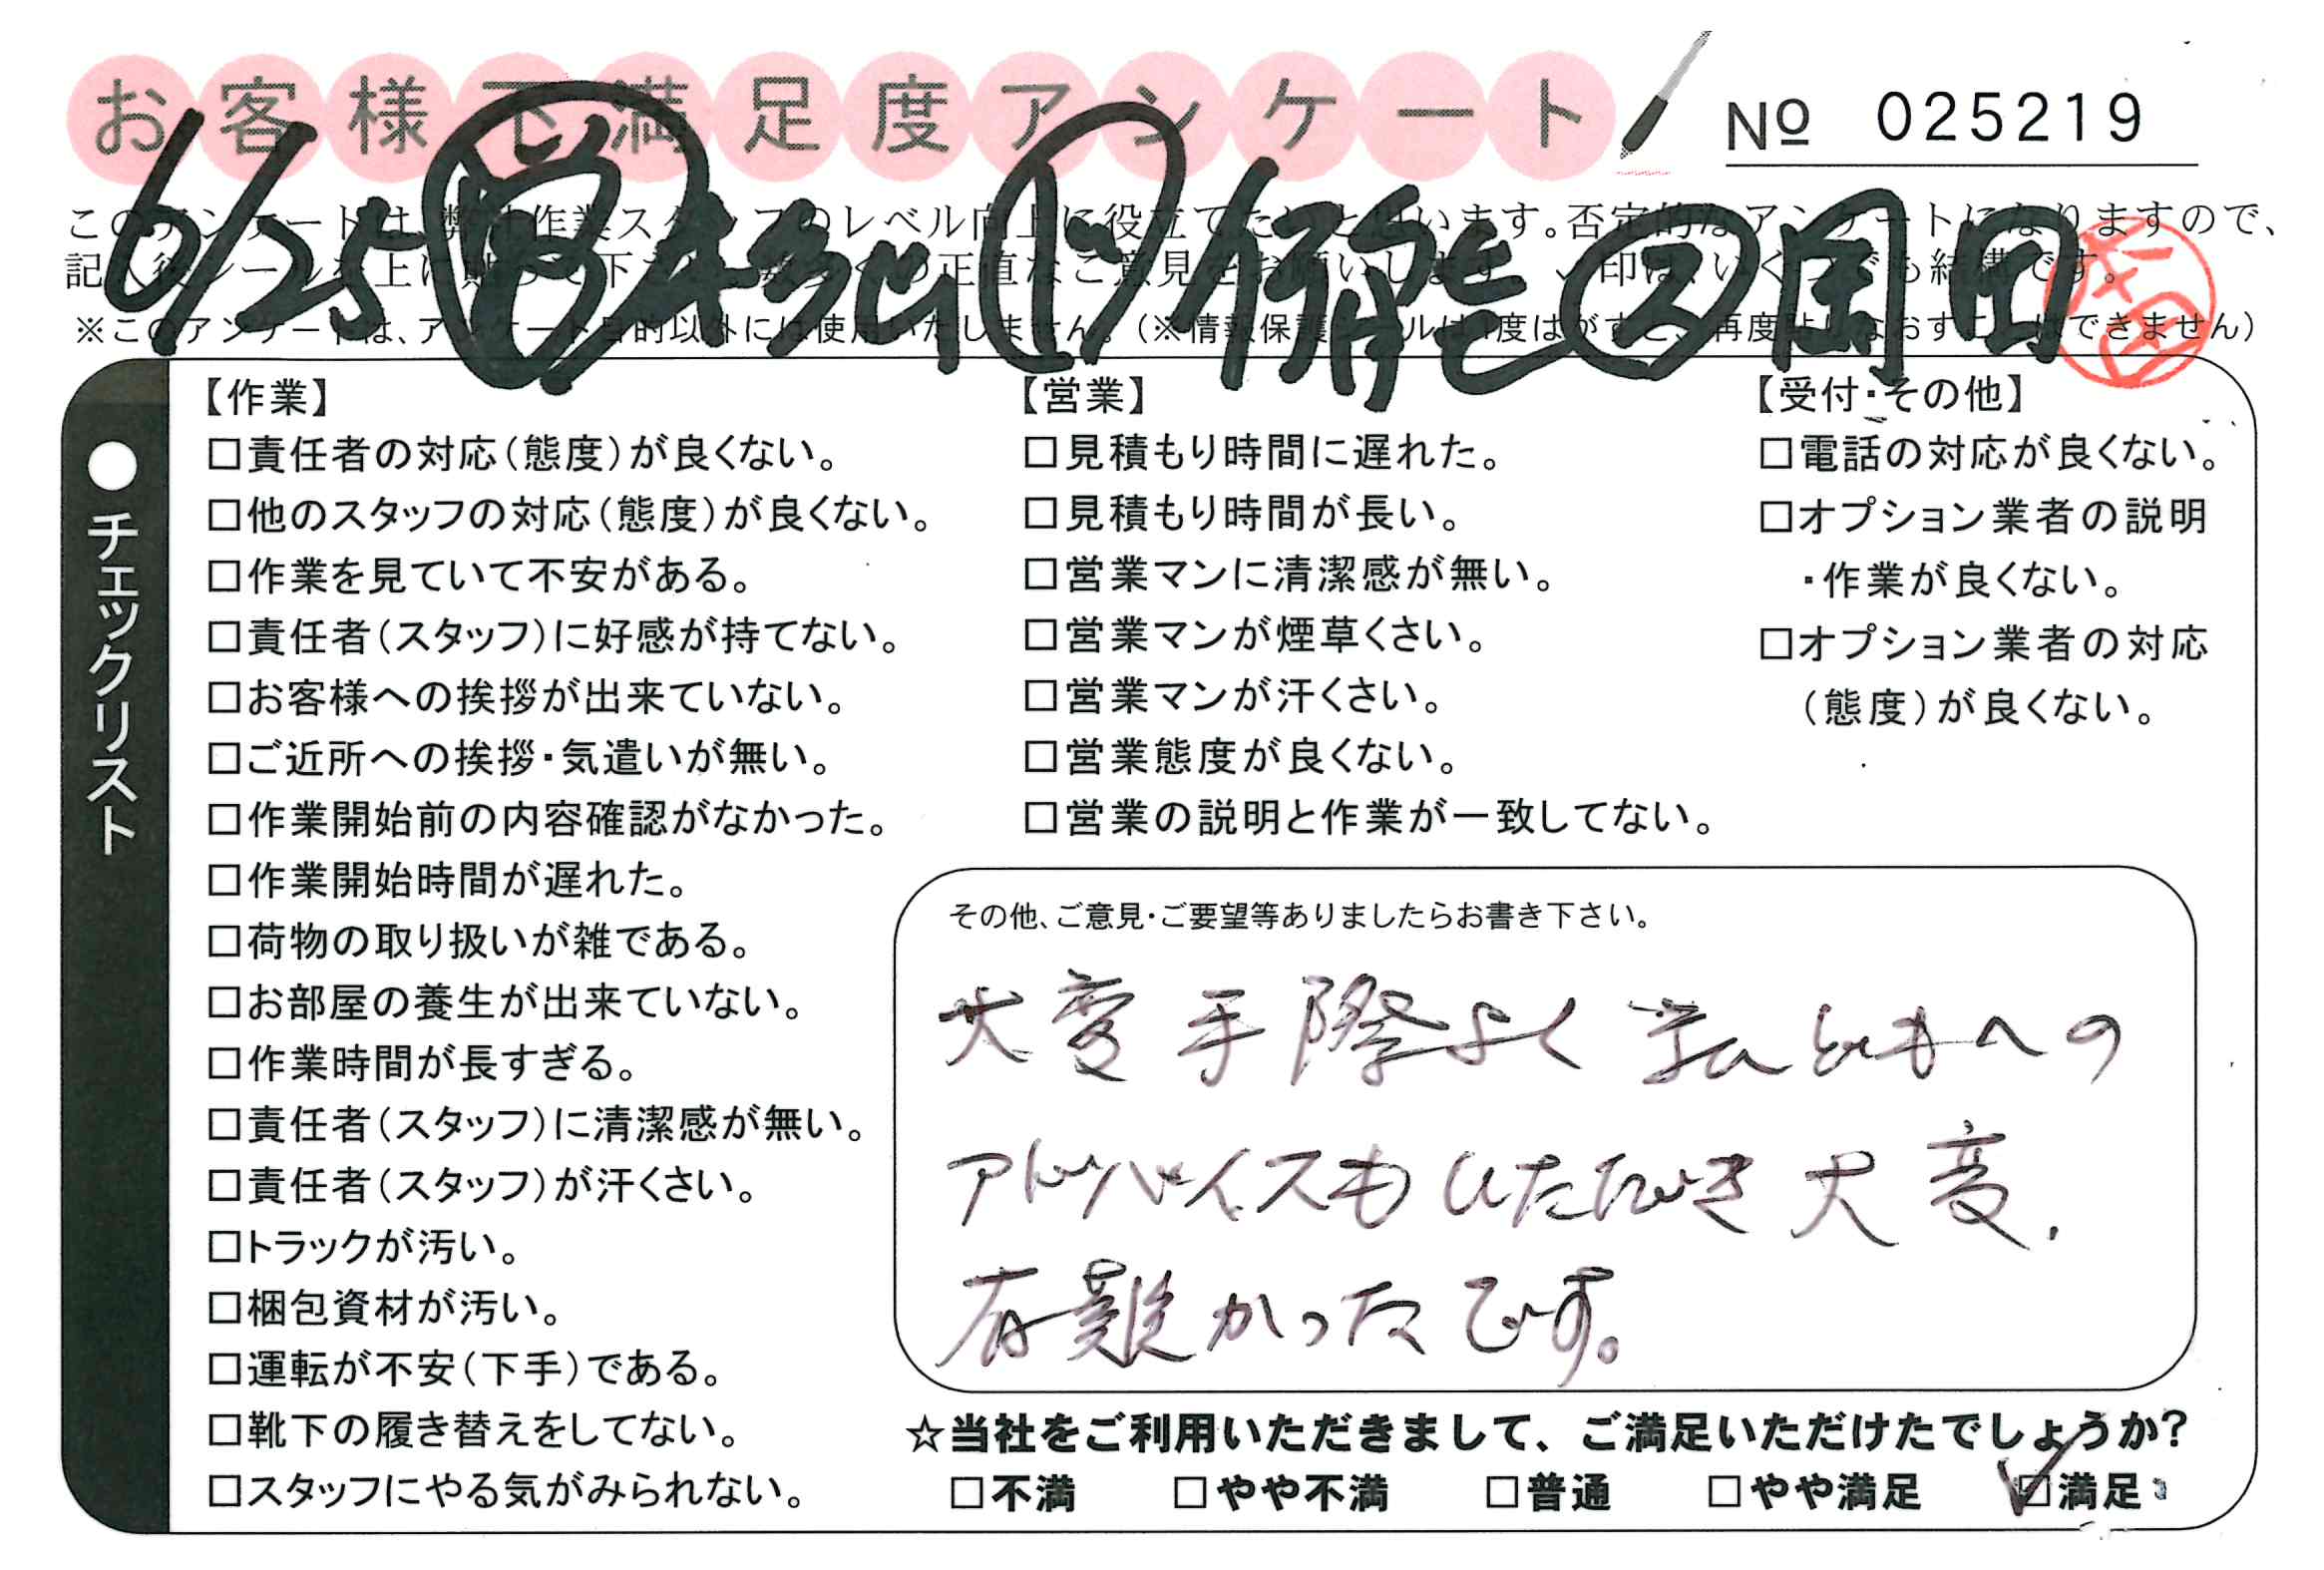 お客様不満足度アンケート
№ 025219
6/25
このアンケートは、弊社作業スタッフのレベル向上に役立てたいと思います。否定的なアンケートになりますので、
記入後シールを上に貼って下さい。数多くの正直なご意見をお願いします。✓印は、いくつでも結構です。
※このアンケートは、アンケート目的以外には使用いたしません。（※情報保護シールは1度はがすと、再度貼りなおすことはできません）
●チェックリスト
【作業】
□責任者の対応（態度）が良くない。
□他のスタッフの対応（態度）が良くない。
□作業を見ていて不安がある。
□責任者（スタッフ）に好感が持てない。
□お客様への挨拶が出来ていない。
□ご近所への挨拶・気遣いが無い。
□作業開始前の内容確認がなかった。
□作業開始時間が遅れた。
□荷物の取り扱いが雑である。
□お部屋の養生が出来ていない。
□作業時間が長すぎる。
□責任者（スタッフ）に清潔感が無い。
□責任者（スタッフ）が汗くさい。
□トラックが汚い。
□梱包資材が汚い。
□運転が不安（下手）である。
□靴下の履き替えをしてない。
□スタッフにやる気がみられない。
【営業】
□見積もり時間に遅れた。
□見積もり時間が長い。
□営業マンに清潔感が無い。
□営業マンが煙草くさい。
□営業マンが汗くさい。
□営業態度が良くない。
□営業の説明と作業が一致してない。
【受付・その他】
□電話の対応が良くない。
□オプション業者の説明
・作業が良くない。
□オプション業者の対応
（態度）が良くない。
その他、ご意見・ご要望等ありましたらお書き下さい。
大変手際よくへの
アドバイスもいただき大変.
有難かったです。
☆当社をご利用いただきまして、ご満足いただけたでしょうか？
□不満 □やや不満 □普通 □やや満足 ☑満足